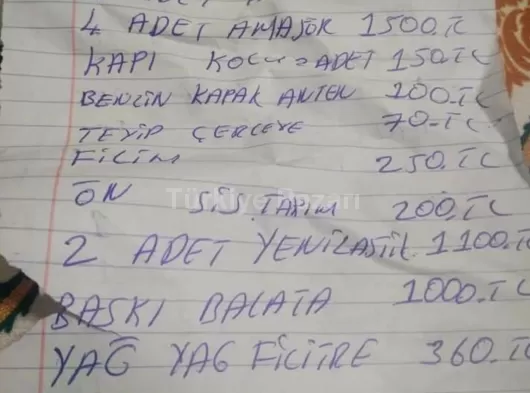 4 ADET AMASÖR 1500.TC
KAPI KOCU 2 ADET 150.TC
BENZİN KAPAK ANTEN 200.TC
TEYİP ÇERCEVE 70.TC
FİLİM 250.TC
ÖN SİS.TAKIM 200.TC
Türkiye Pazarı
2 ADET YENİLASTİK 1100.TC
BASKI BALATA 1000.TC
YAĞ YAG FİLİTRE 360.TC